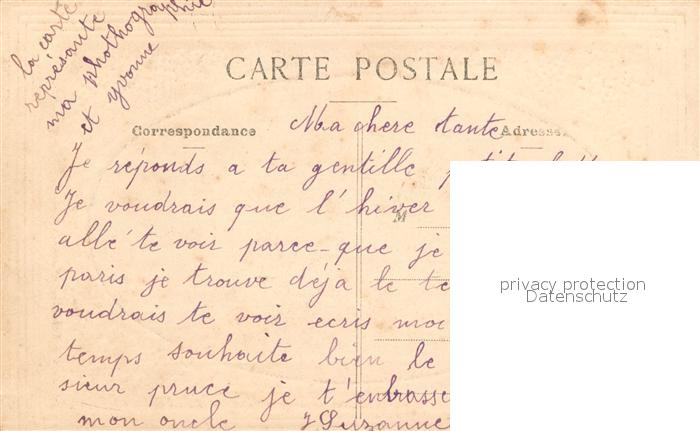 la carte
représante
ma phothographie
et yvonne
CARTE POSTALE
Correspondance
Adresse
Ma chere tante
Je réponds a ta gentille
Je voudrais que l'hiver
M
allé te voir parce-que je
paris je trouve déja le te
voudrais te voir ecris moi
temps souhaite bien le
sieur pruce je t'enbrasse
mon oncle Suzanne
privacy protection
Datenschutz